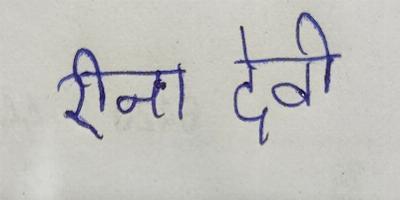 रीना देवी